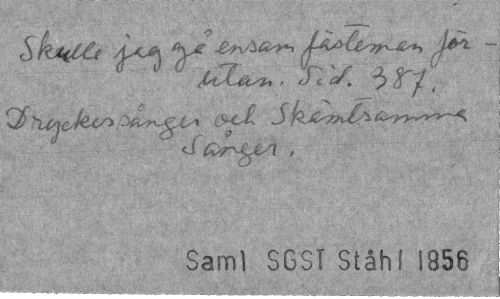 Skulle jag gå ensam fästeman för-
utan. Sid. 387.
Dryckessånger och Skämtsamma
Sånger.
Saml SGST Ståhl 1856